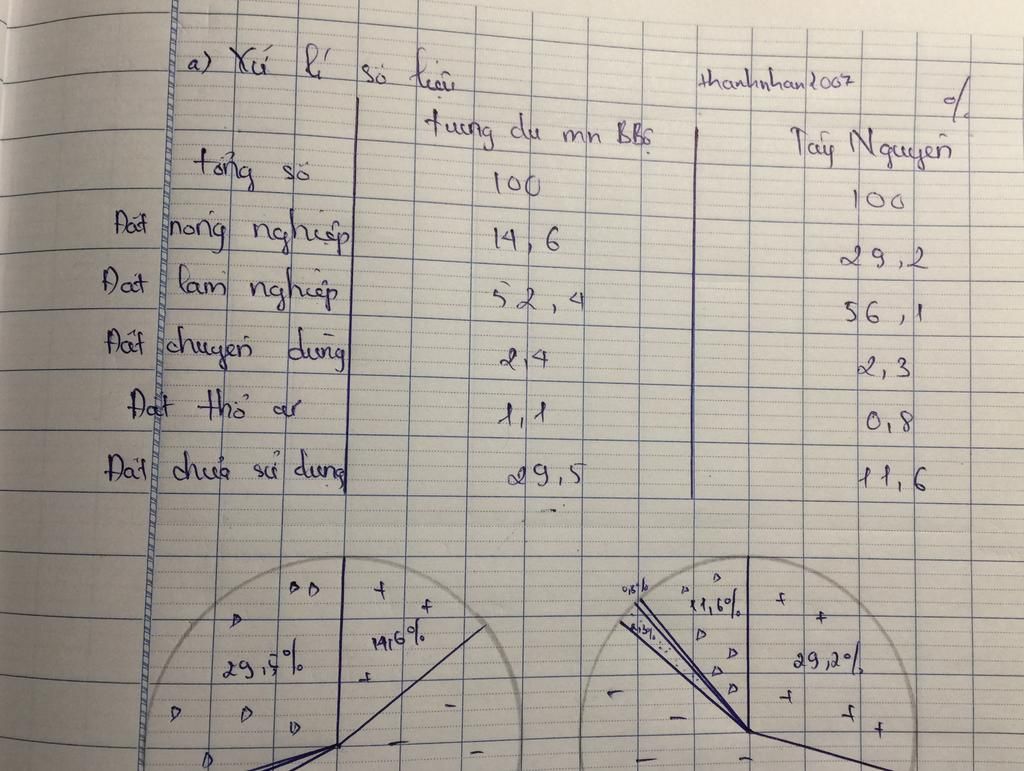 a) Xử lí số liệu
thanhnhan2007
%
trung du mn BBộ
Tây Nguyên
tổng số 100 100
Đất nông nghiệp 14,6 29,2
Đất lâm nghiệp 52,4 56,1
Đất chuyên dùng 2,4 2,3
Đất thổ cư 1,1 0,8
Đất chưa sử dụng 29,5 11,6
29,5% 14,6%
0,8% 11,6%
2,3%
29,2%